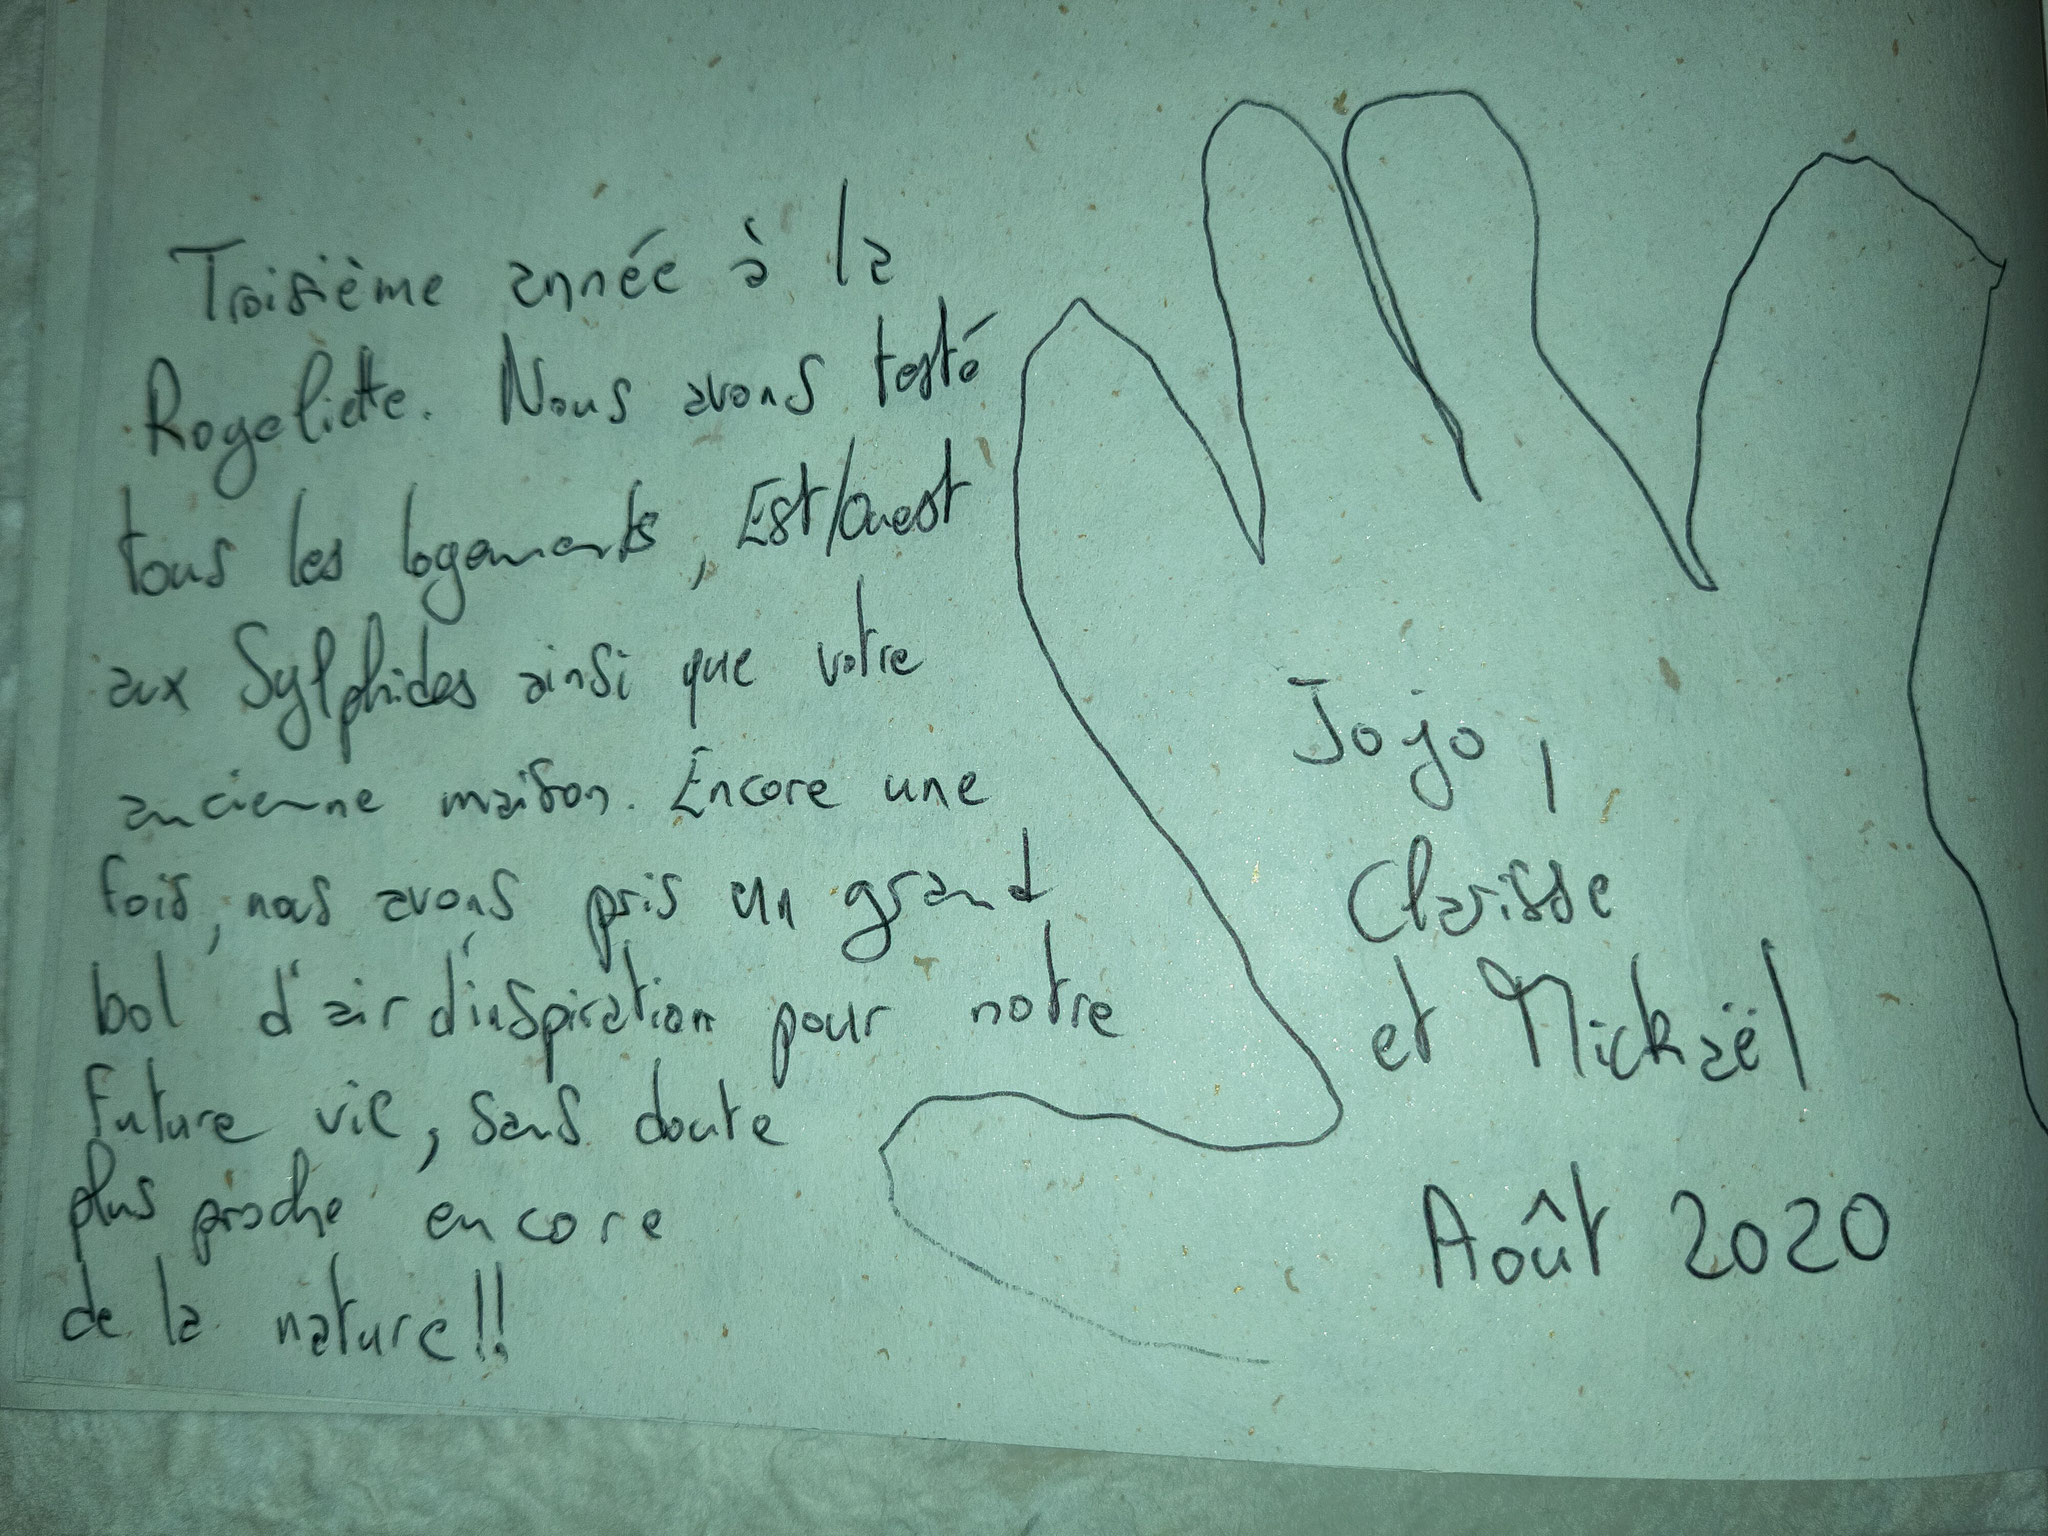 Troisième année à la
Rogeliette. Nous avons testé
tous les logements, Est/Ouest
aux Sylphides ainsi que votre
ancienne maison. Encore une
fois, nous avons pris un grand
bol d'air d'inspiration pour notre
future vie, sans doute
plus proche encore
de la nature!!
Jojo,
Clarisse
et Mickaël
Août 2020